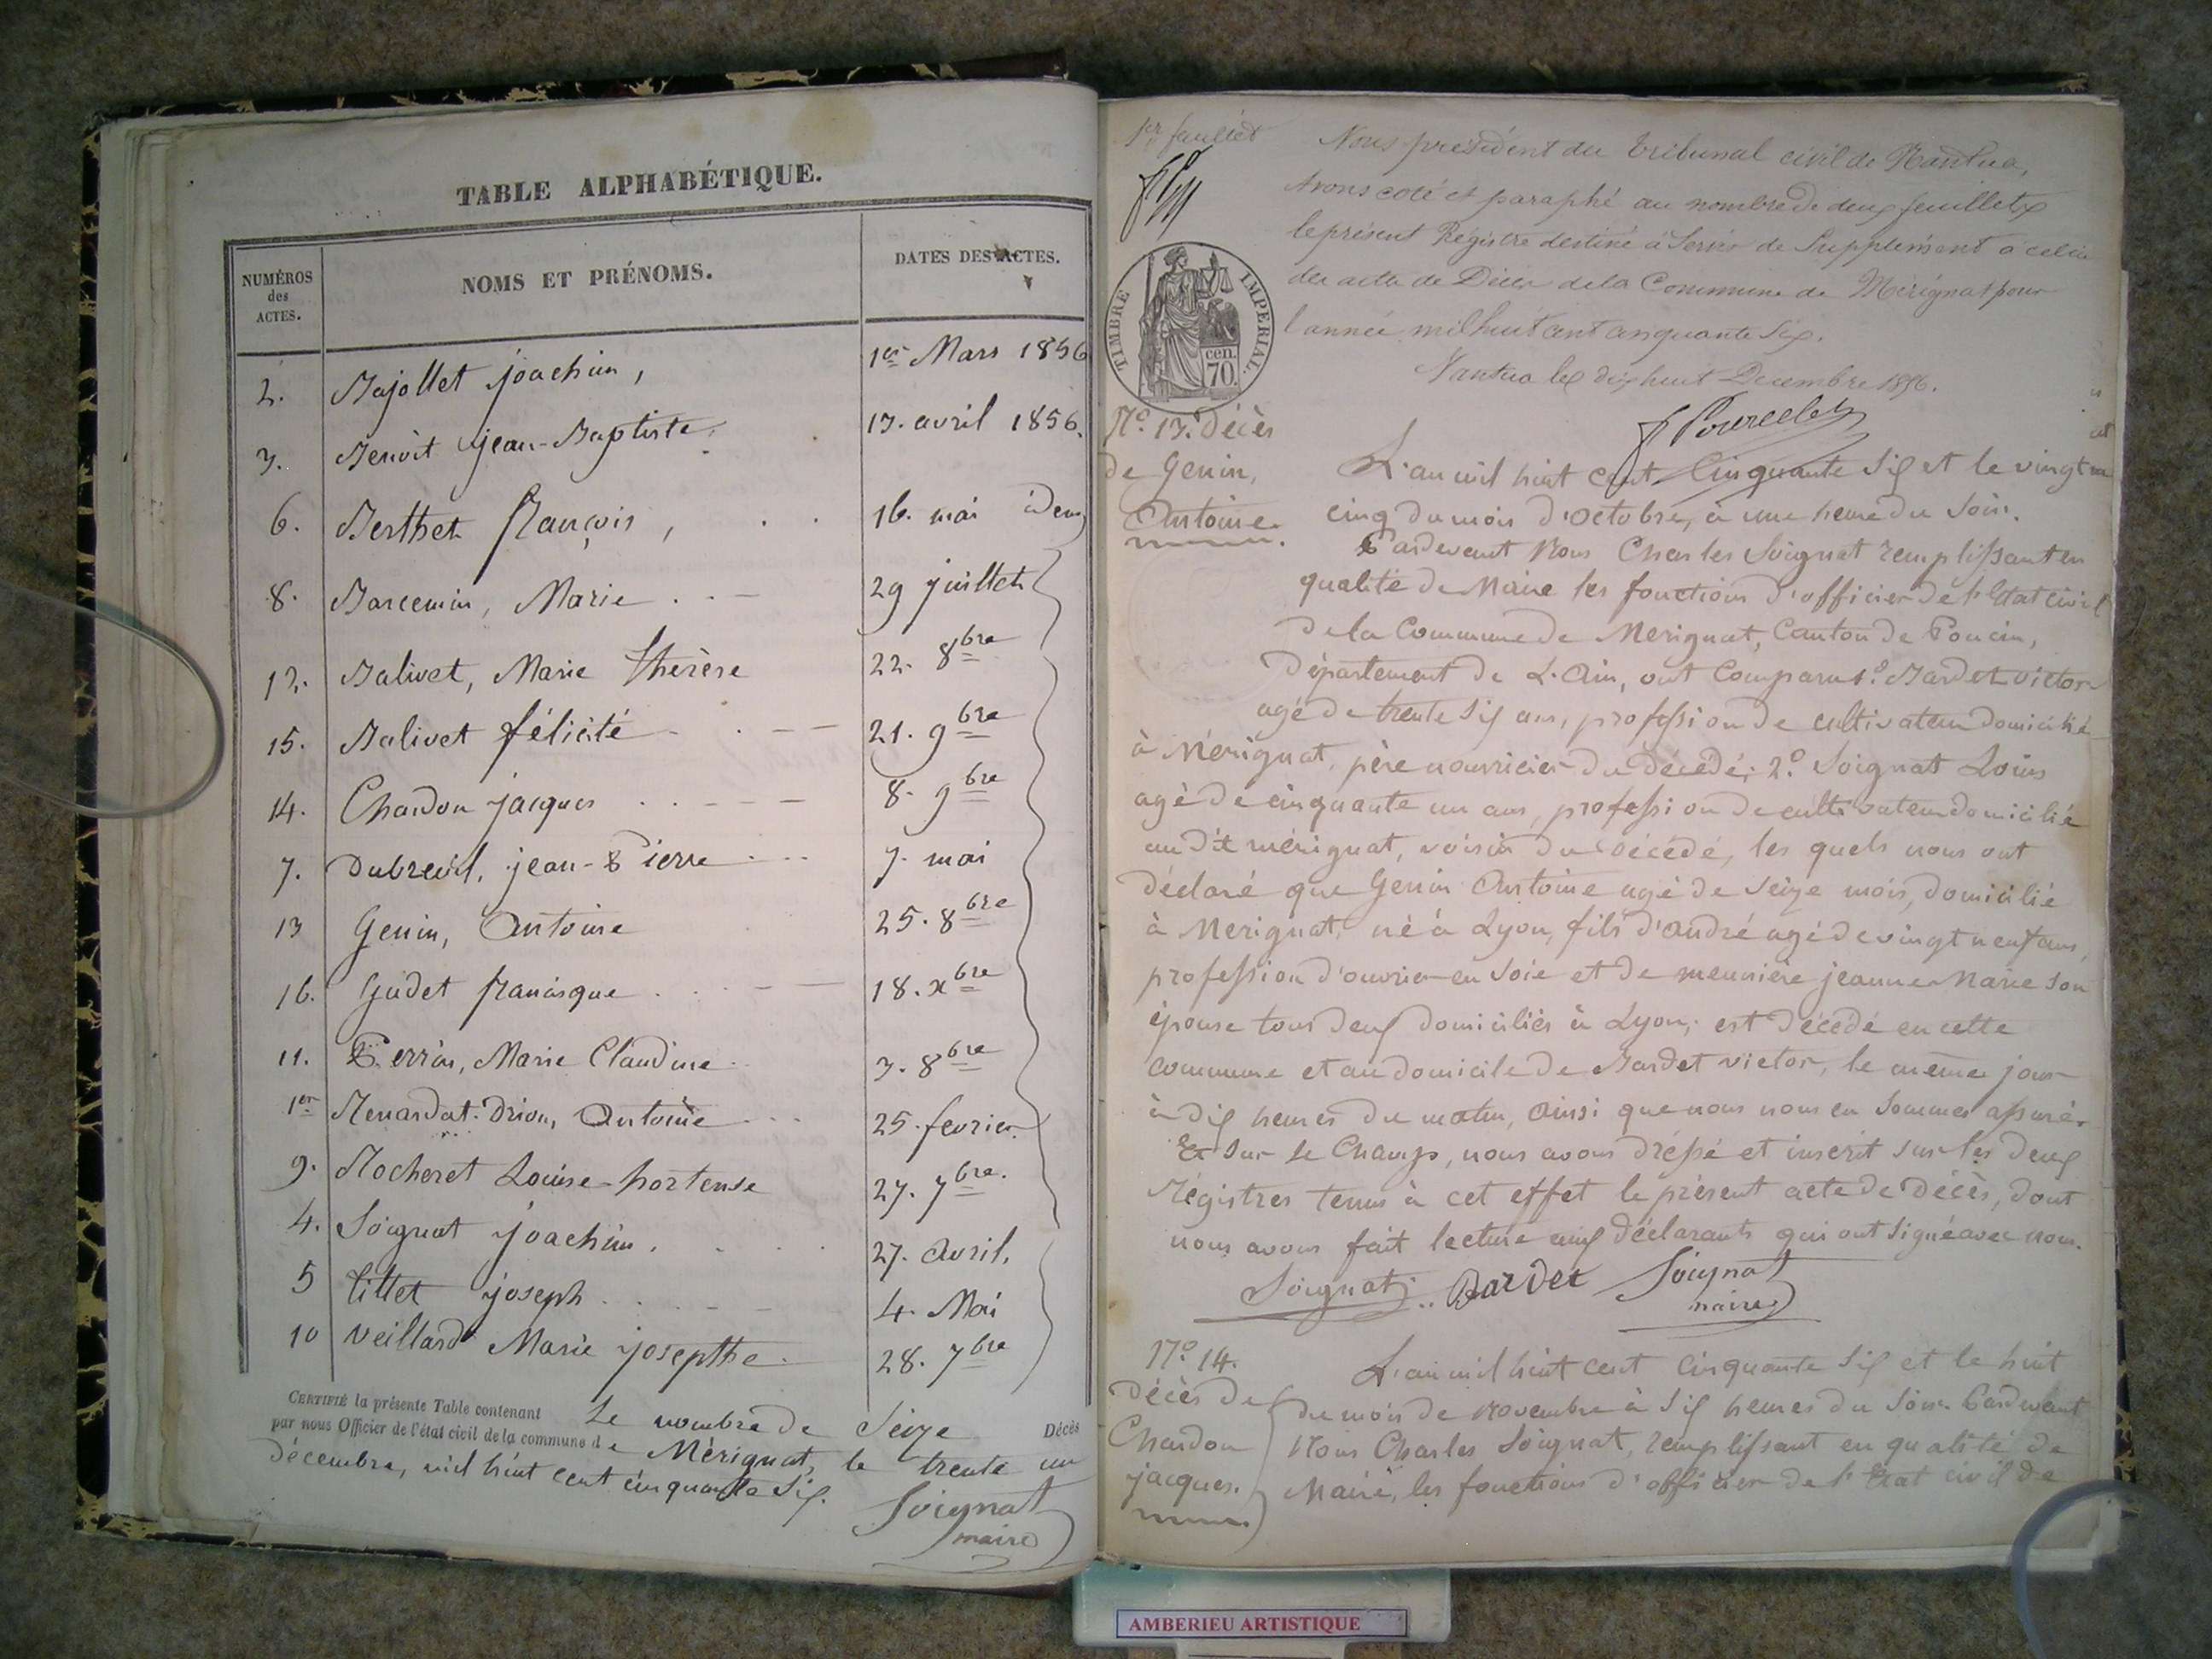 TABLE ALPHABÉTIQUE.
NUMÉROS
des
ACTES.
NOMS ET PRÉNOMS.
DATES DES ACTES.
2. Bajollet joachim, 1er Mars 1856
3. Benoit jean-Baptiste. 13. avril 1856.
6. Berthet François, 16. mai idem
8. Barcemin, Marie 29 juillet
12. Balivet, Marie thérèse 22. 8bre
15. Balivet félicité 21. 9bre
14. Chardon jacques 8. 9bre
7. Dubreuil, jean-Pierre 7. mai
13 Genin, Antoine 25. 8bre
16. Gudet francisque 18. xbre
11. Perrin, Marie Claudine 3. 8bre
1er Renardat-Drion, Antoine 25. fevrier.
9. Rocheret Louise-hortense 27. 7bre.
4. Soignat joachim. 27. Avril.
5 tittet joseph 4. Mai
10 Veillard Marie josepthe. 28. 7bre
CERTIFIÉ la présente Table contenant Le nombre de Seize Décès
par nous Officier de l'état civil de la commune de Mérignat, le trente un
Décembre, mil huit cent cinquante Six.
Soignat
maire
1er feuillet
Nous président du tribunal civil de Nantua,
Avons coté et paraphé au nombre de deux feuillets
le présent Régistre destiné à Servir de Supplément à celui
des actes de Décès de la Commune de Mérignat pour
l'année mil huit cent cinquante Six.
Nantua le dix huit Decembre 1856.
TIMBRE IMPERIAL.
cen.
70.
N.o 13. Décès
de Genin,
Antoine.
L'an mil huit cent Cinquante Six et le vingt
cinq du mois d'Octobre, à une heure du Soir.
Pardevant Nous Charles Soignat remplissant en
qualité de Maire les fonctions d'officier de l'Etat civil
de la Commune de Merignat, Canton de Poncin,
Département de L'Ain, ont Comparus 1.o Bardet victor
agé de trente Six ans, profession de cultivateur domicilié
à Mérignat, père nourricier du décédé; 2.o Soignat Louis
agé de cinquante un ans, profession de cultivateur domicilié
au dit mérignat, voisin du décédé, les quels nous ont
déclaré que Genin Antoine agé de Seize mois, domicilié
à Merignat, né à Lyon, fils d'André agé de vingt neuf ans,
profession d'ouvrier en Soie et de meunière jeanne Marie son
épouse tous deux domiciliés à Lyon; est décédé en cette
commune et au domicile de Bardet victor, le même jour
à dix heures du matin, Ainsi que nous nous en Sommes assuré.
Et Sur le Champ, nous avons dréssé et inscrit sur les deux
Régistres tenus à cet effet le présent acte de Décès, dont
nous avons fait lecture aux déclarants qui ont Signé avec nous.
Soignat Bardet Soignat
maire
N.o 14.
Décès de
Chardon
jacques.
L'an mil huit cent Cinquante Six et le huit
du mois de Novembre à Six heures du Soir. Pardevant
Nous Charles Soignat, remplissant en qualité de
Maire, les fonctions d'officier de l'Etat civil de
AMBERIEU ARTISTIQUE